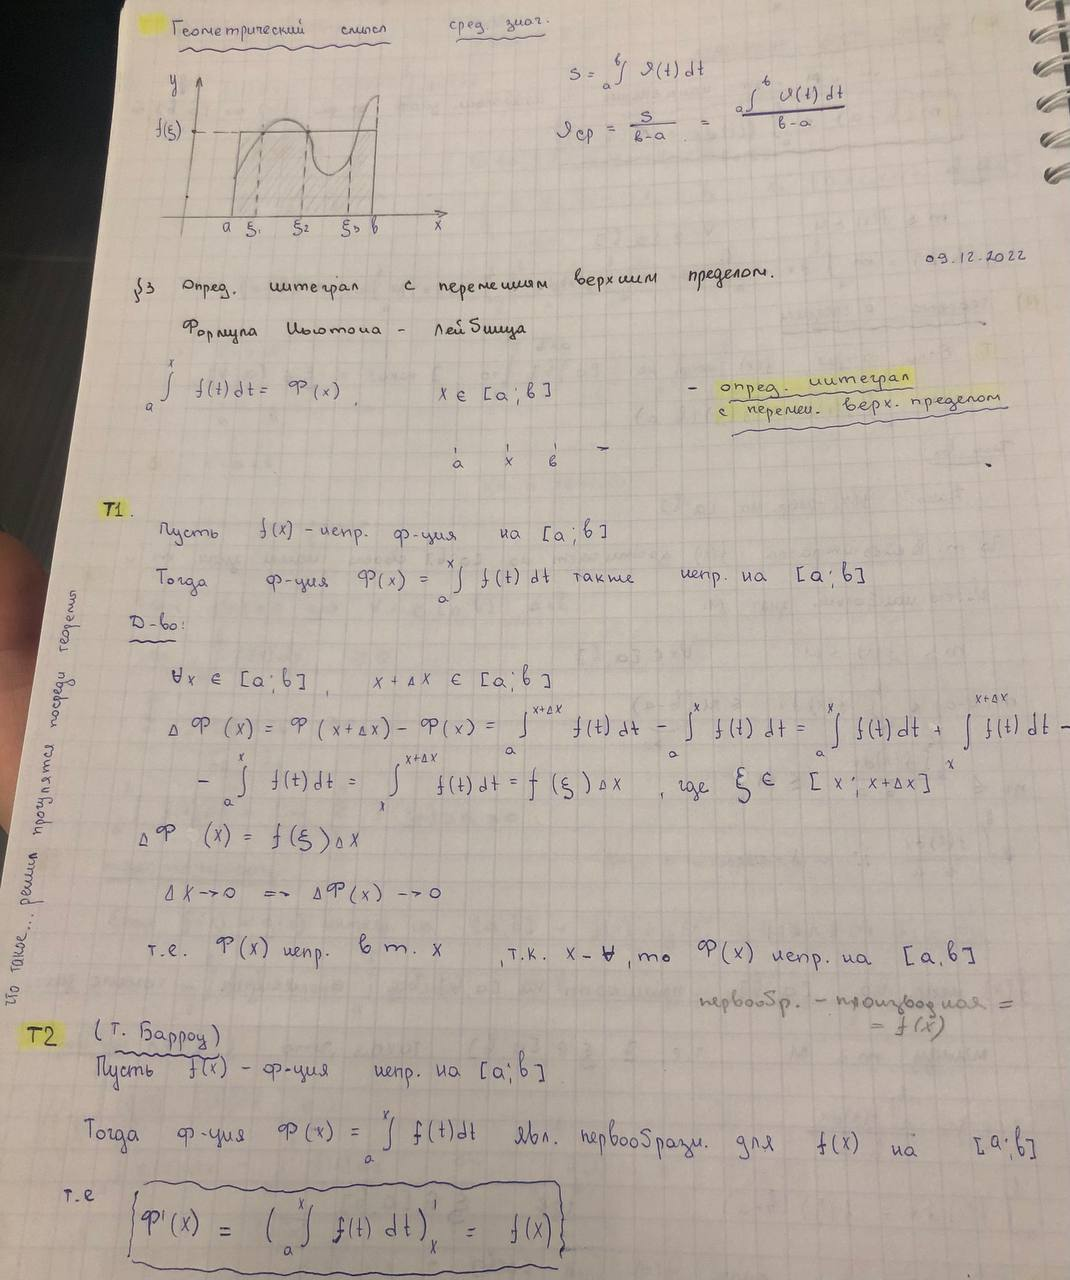 Геометрический смысл сред. знач.
y
f(ξ)
a ξ₁ ξ₂ ξ₃ b x
S = ₐ∫ᵇ v(t) dt
vср = S/(b-a) = ₐ∫ᵇ v(t) dt/(b-a)
09.12.2022
§3 Опред. интеграл с переменным верхним пределом.
Формула Ньютона - Лейбница
ₐ∫ˣ f(t) dt = Ф(x), x ∈ [a; b] - опред. интеграл
с перемен. верх. пределом
a x b
T1.
Пусть f(x) - непр. ф-ция на [a; b]
Тогда ф-ция Ф(x) = ₐ∫ˣ f(t) dt также непр. на [a; b]
Д-во:
∀x ∈ [a; b], x + Δx ∈ [a; b]
ΔФ(x) = Ф(x+Δx) - Ф(x) = ₐ∫ˣ⁺ᐃˣ f(t) dt - ₐ∫ˣ f(t) dt = ₐ∫ˣ f(t) dt + ₓ∫ˣ⁺ᐃˣ f(t) dt -
- ₐ∫ˣ f(t) dt = ₓ∫ˣ⁺ᐃˣ f(t) dt = f(ξ) Δx, где ξ ∈ [x; x+Δx]
ΔФ(x) = f(ξ) Δx
Δx → 0 => ΔФ(x) → 0
т.е. Ф(x) непр. в т. x, т.к. x - ∀, то Ф(x) непр. на [a, b]
первообр. - производная =
= f(x)
что такое... решил прогулятся посреди теоремы
T2 (т. Барроу)
Пусть f(x) - ф-ция непр. на [a; b]
Тогда ф-ция Ф(x) = ₐ∫ˣ f(t) dt явл. первообразн. для f(x) на [a; b]
т.е Ф'(x) = (ₐ∫ˣ f(t) dt)'ₓ = f(x)